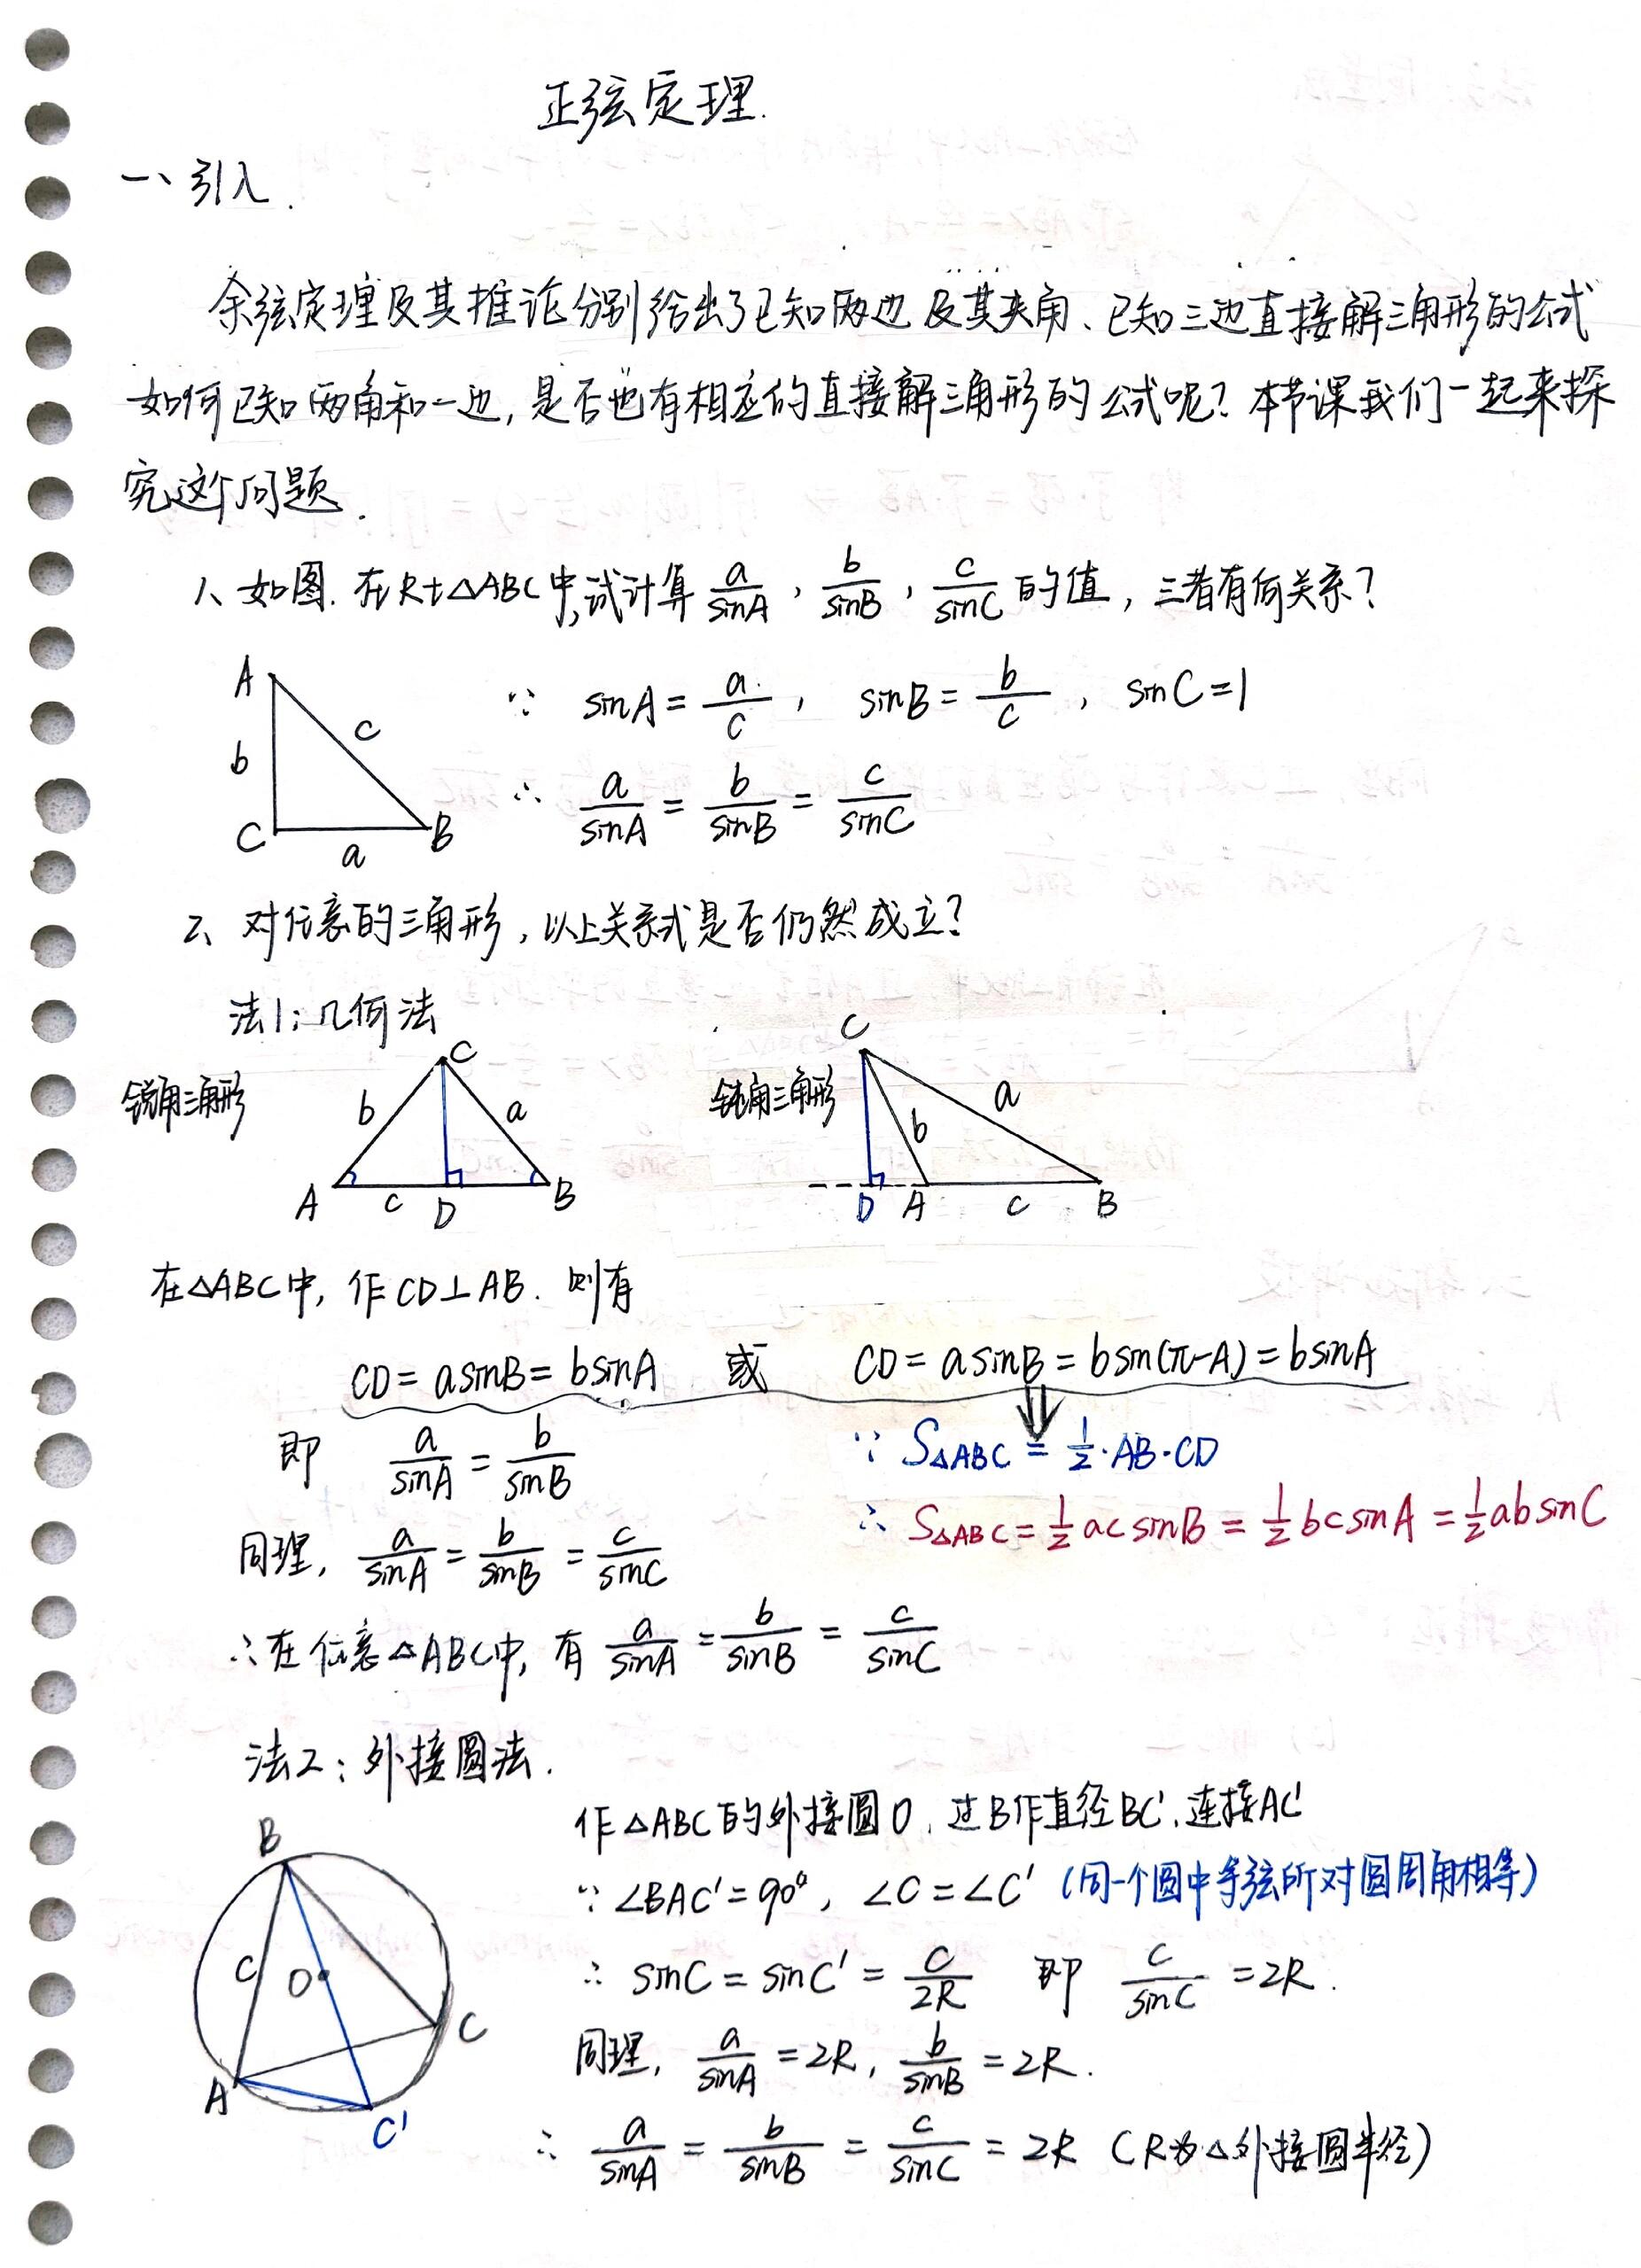 正弦定理.
一、引入.
余弦定理及其推论分别给出了已知两边及其夹角、已知三边直接解三角形的公式
如何已知两角和一边,是否也有相应的直接解三角形的公式呢?本节课我们一起来探
究这个问题.
1、如图.在Rt△ABC中,试计算 a/sinA , b/sinB , c/sinC 的值,三者有何关系?
A
b
c
C
a
B
∵ sinA = a/c , sinB = b/c , sinC = 1
∴ a/sinA = b/sinB = c/sinC
2、对任意的三角形,以上关系式是否仍然成立?
法1:几何法
锐角三角形
C
b
a
A
c
D
B
钝角三角形
C
a
b
D
A
c
B
在△ABC中, 作CD⊥AB. 则有
CD = asinB = bsinA 或 CD = asinB = bsin(π-A) = bsinA
⇓
即 a/sinA = b/sinB
∵ S△ABC = 1/2·AB·CD
∴ S△ABC = 1/2 ac sinB = 1/2 bc sinA = 1/2 ab sinC
同理, a/sinA = b/sinB = c/sinC
∴在任意△ABC中, 有 a/sinA = b/sinB = c/sinC
法2:外接圆法.
B
c
O
C
A
C'
作△ABC的外接圆O, 过B作直径BC',连接AC'
∵ ∠BAC'=90°, ∠C=∠C' (同一个圆中等弦所对圆周角相等)
∴ sinC = sinC' = c/2R 即 c/sinC = 2R.
同理, a/sinA = 2R, b/sinB = 2R.
∴ a/sinA = b/sinB = c/sinC = 2R (R为△外接圆半径)